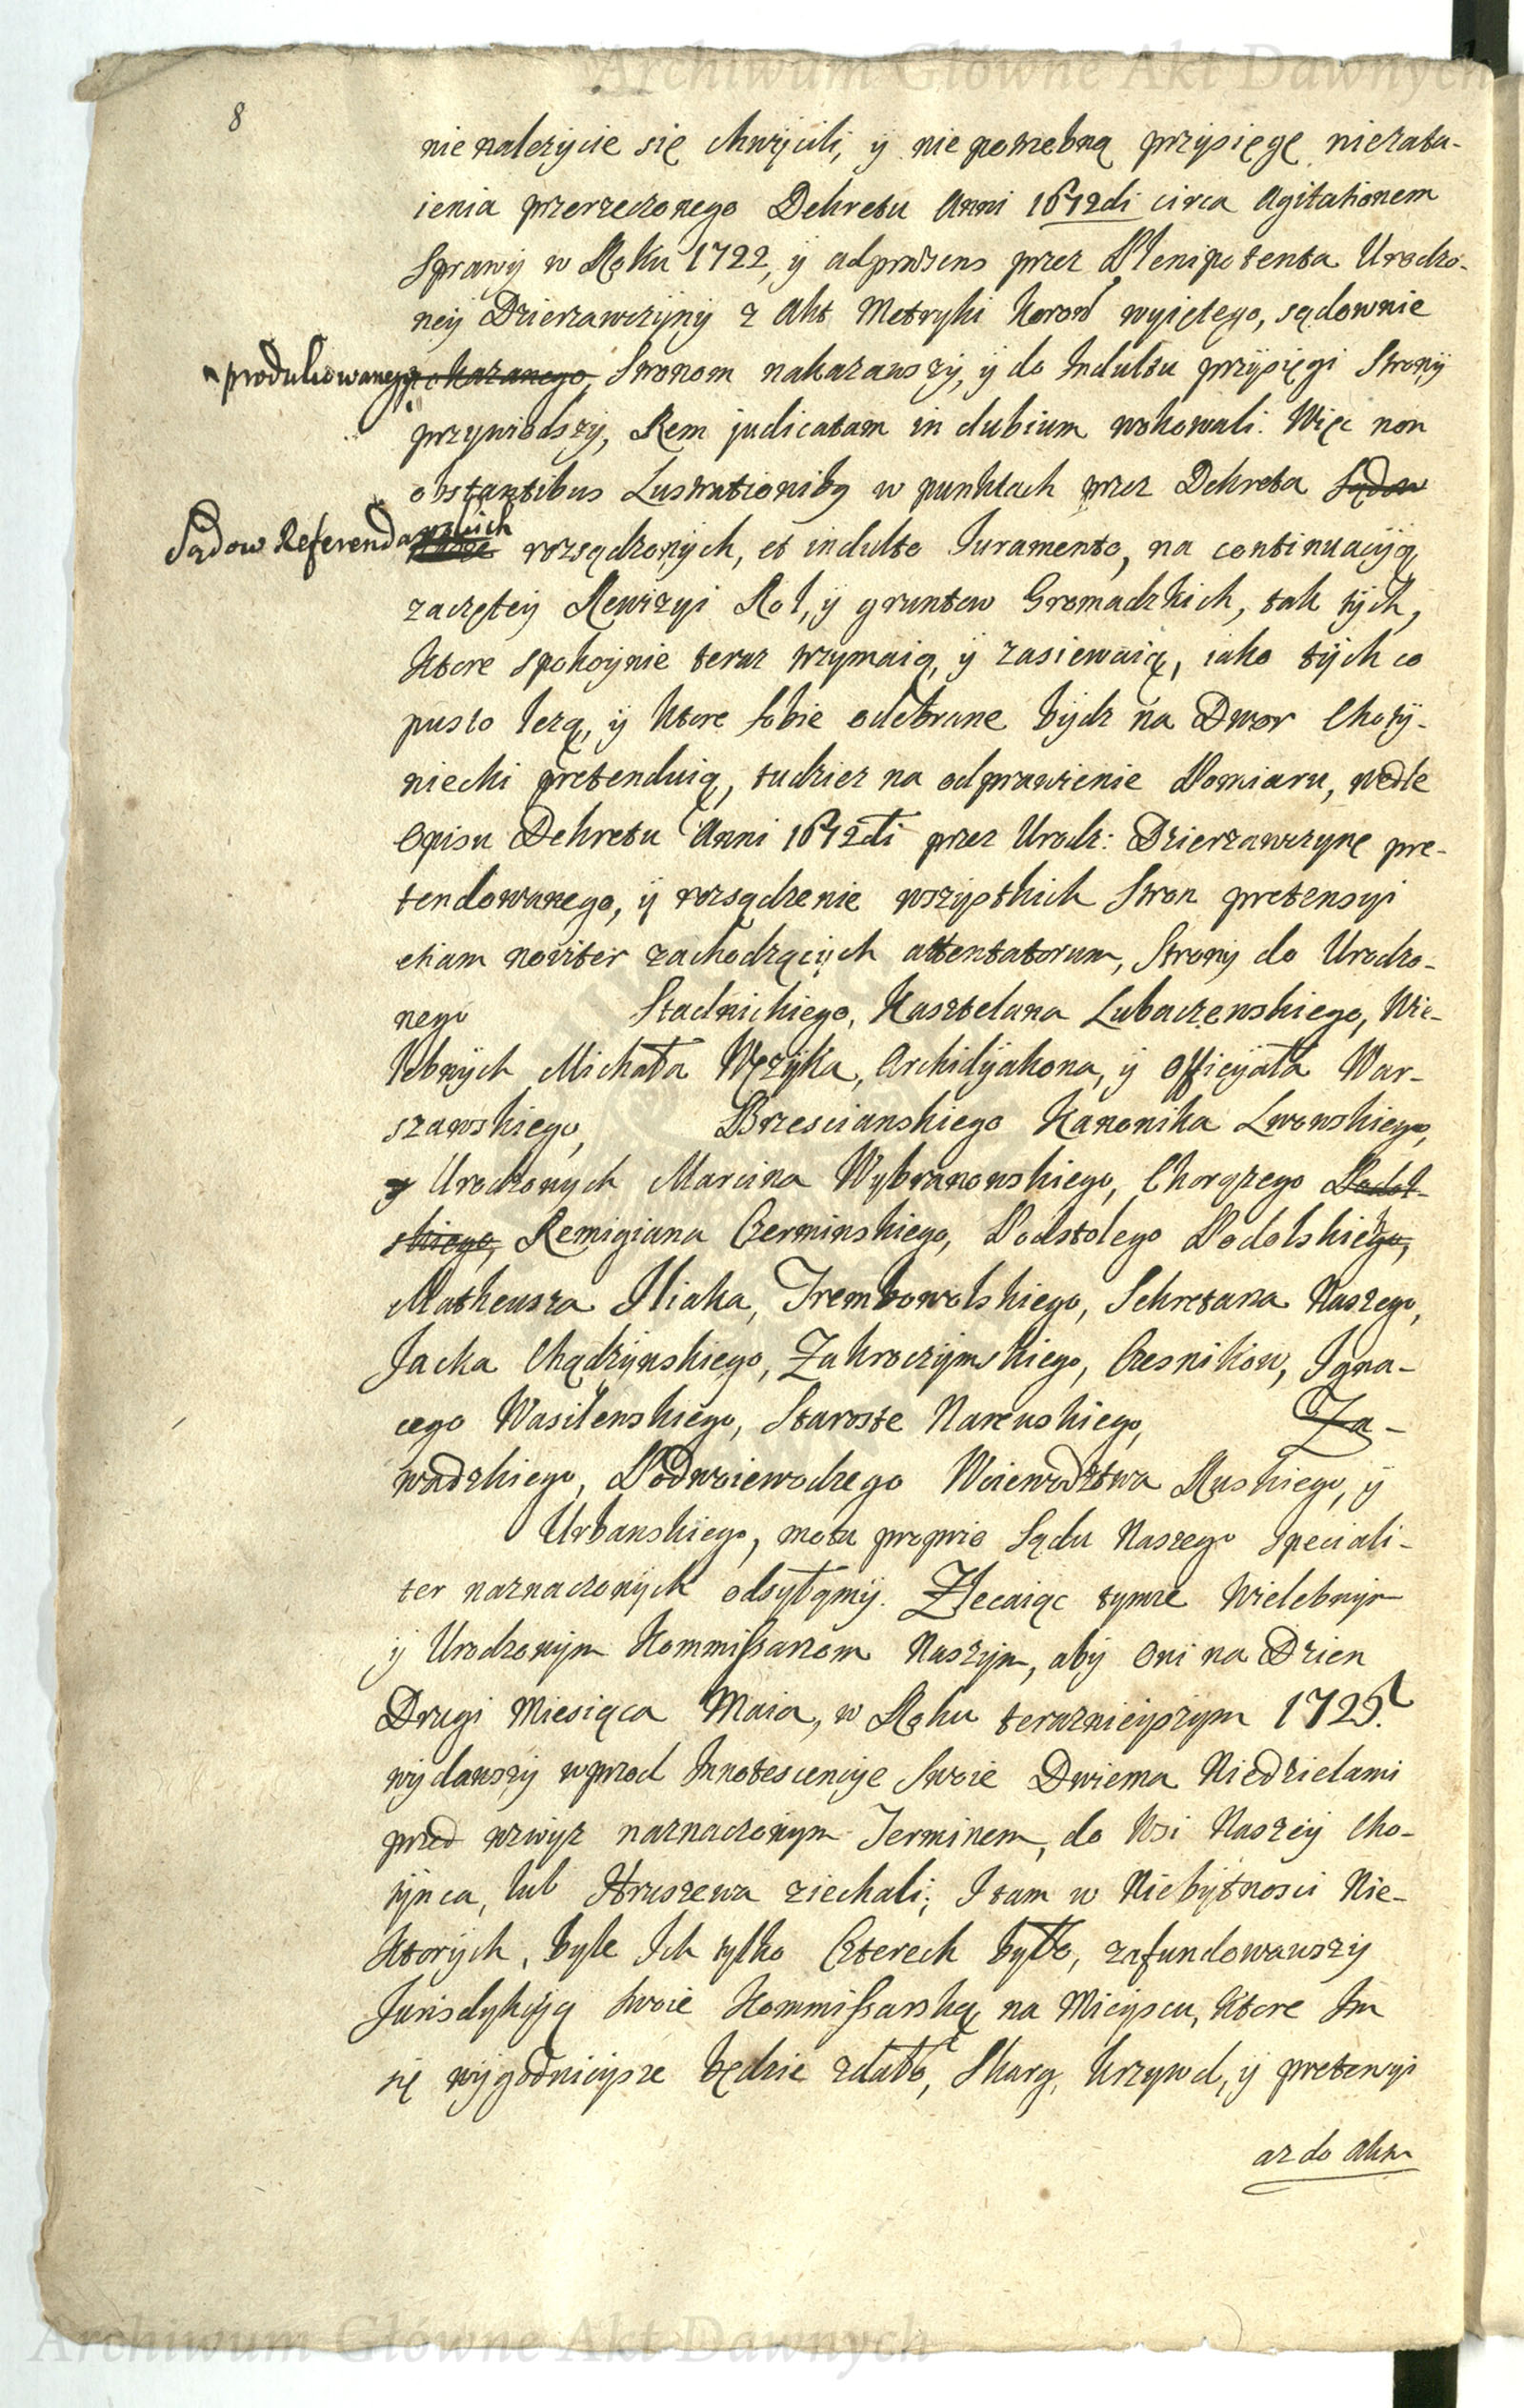 Archiwum Główne Akt Dawnych
8
nie należycie się chwycili, ÿ nie potrzebną przysięgę niezata-
ienia przerzeczonego Dekretu Anni 1672di circa Agitationem
Sprawÿ w Roku 1722, ÿ ad præsens przez Plenipotenta Urodzo-
neÿ Dzierzawczÿnÿ z Akt Metryki Koron wyiętego, sądownie
produkowanego pokazanego, Stronom nakazawszÿ, ÿ do Indultu przÿsięgi Stronÿ
przywiodszÿ, Rem judicatam in dubium wokowali. Więc non
obstantibus Lustrationibq w punktach przez Dekreta Sądow
Sądow Referendarskich rozsądzonÿch, et indulto Juramento, na continuacÿą
zaczęteÿ Rewizyi Rol, ÿ gruntow Gromadzkich, tak tÿch,
ktore spokoÿnie teraz trzymaią, ÿ zasiewaią, iako tÿch co
pusto leżą, ÿ ktore sobie odebrane bÿdz na Dwor Chotÿ-
niecki pretenduią, tudziez na odprawienie Pomiaru, wedle
Opisu Dekretu Anni 1672di przez Urodz: Dzierzawczynę pre-
tendowanego, ÿ rozsądzenie wszÿstkich Stron pretensyi
etiam noviter zachodzącÿch attentatorum, Stronÿ do Urodzo-
nego Stadnickiego, Kasztelana Lubaczewskiego, Wie-
lebnÿch Michała Węzÿka, Archidÿakona, ÿ Officÿała War-
szawskiego, Brzescianskiego Kanonika Lwowskiego,
y Urodzonych Marcina Wybranowskiego, Chorązego Podol-
skiego, Remigiana Czerminskiego, Podstolego Podolskiego,
Matheusza Iliaka, Trembowolskiego, Sekretarza Naszego,
Jacka Chądzÿnskiego, Zakroczÿmskiego, Czesnikow, Igna-
cego Wasilewskiego, Staroste Narewskiego, Za-
wadzkiego, Podwoiewodzego Woiewodztwa Ruskiego, ÿ
Urbanskiego, motu proprio Sądu Naszego speciali-
ter naznaczonÿch odsyłamÿ. Zlecaiąc tymże Wielebnÿm
ÿ Urodzonÿm Kommissarzom Naszÿm, abÿ Oni na Dzien
Drugi Miesiąca Maia, w Roku teraznieÿszÿm 1725.
wÿdawszÿ wprzod Innotescencÿe Swoie Dwiema Niedzielami
przed wzwÿż naznaczonÿm Terminem, do Wsi Naszeÿ Cho-
tÿnca, lub Hruszewa ziechali; I tam w Niebÿtnosci Nie-
ktorÿch, byle Ich tylko Czterech było, zafundowawszÿ
Jurisdykcÿą swoie Kommissarską na Mieÿscu, ktore Im
się wÿgodnieÿsze będzie zdało, Skarg, krzywd, ÿ pretensyi
az do Aktu
Archiwum Główne Akt Dawnych